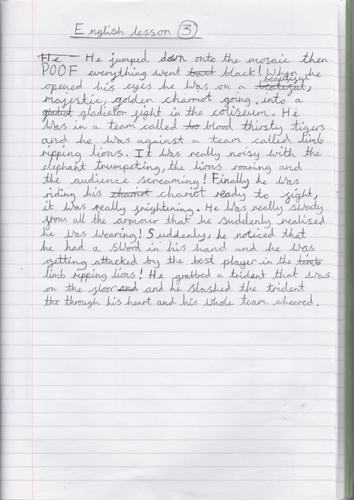 English lesson 3
He He jumped down onto the mosaic then
POOF everything went black! When he
opened his eyes he was on a beautiful,
majestic, golden chariot going into a
gladiator fight in the coliseum. He
was in a team called blood thirsty tigers
and he was against a team called limb
ripping lions. It was really noisy with the
elephant trumpeting, the lions roaring and
the audience screaming! Finally he was
riding his chariot ready to fight,
it was really frightening. He was really sweaty
from all the armour that he suddenly realised
he was wearing! Suddenly, he noticed that
he had a sword in his hand and he was
getting attacked by the best player in the
limb ripping lions! He grabbed a trident that was
on the floor and he slashed the trident
through his heart and his whole team cheered.